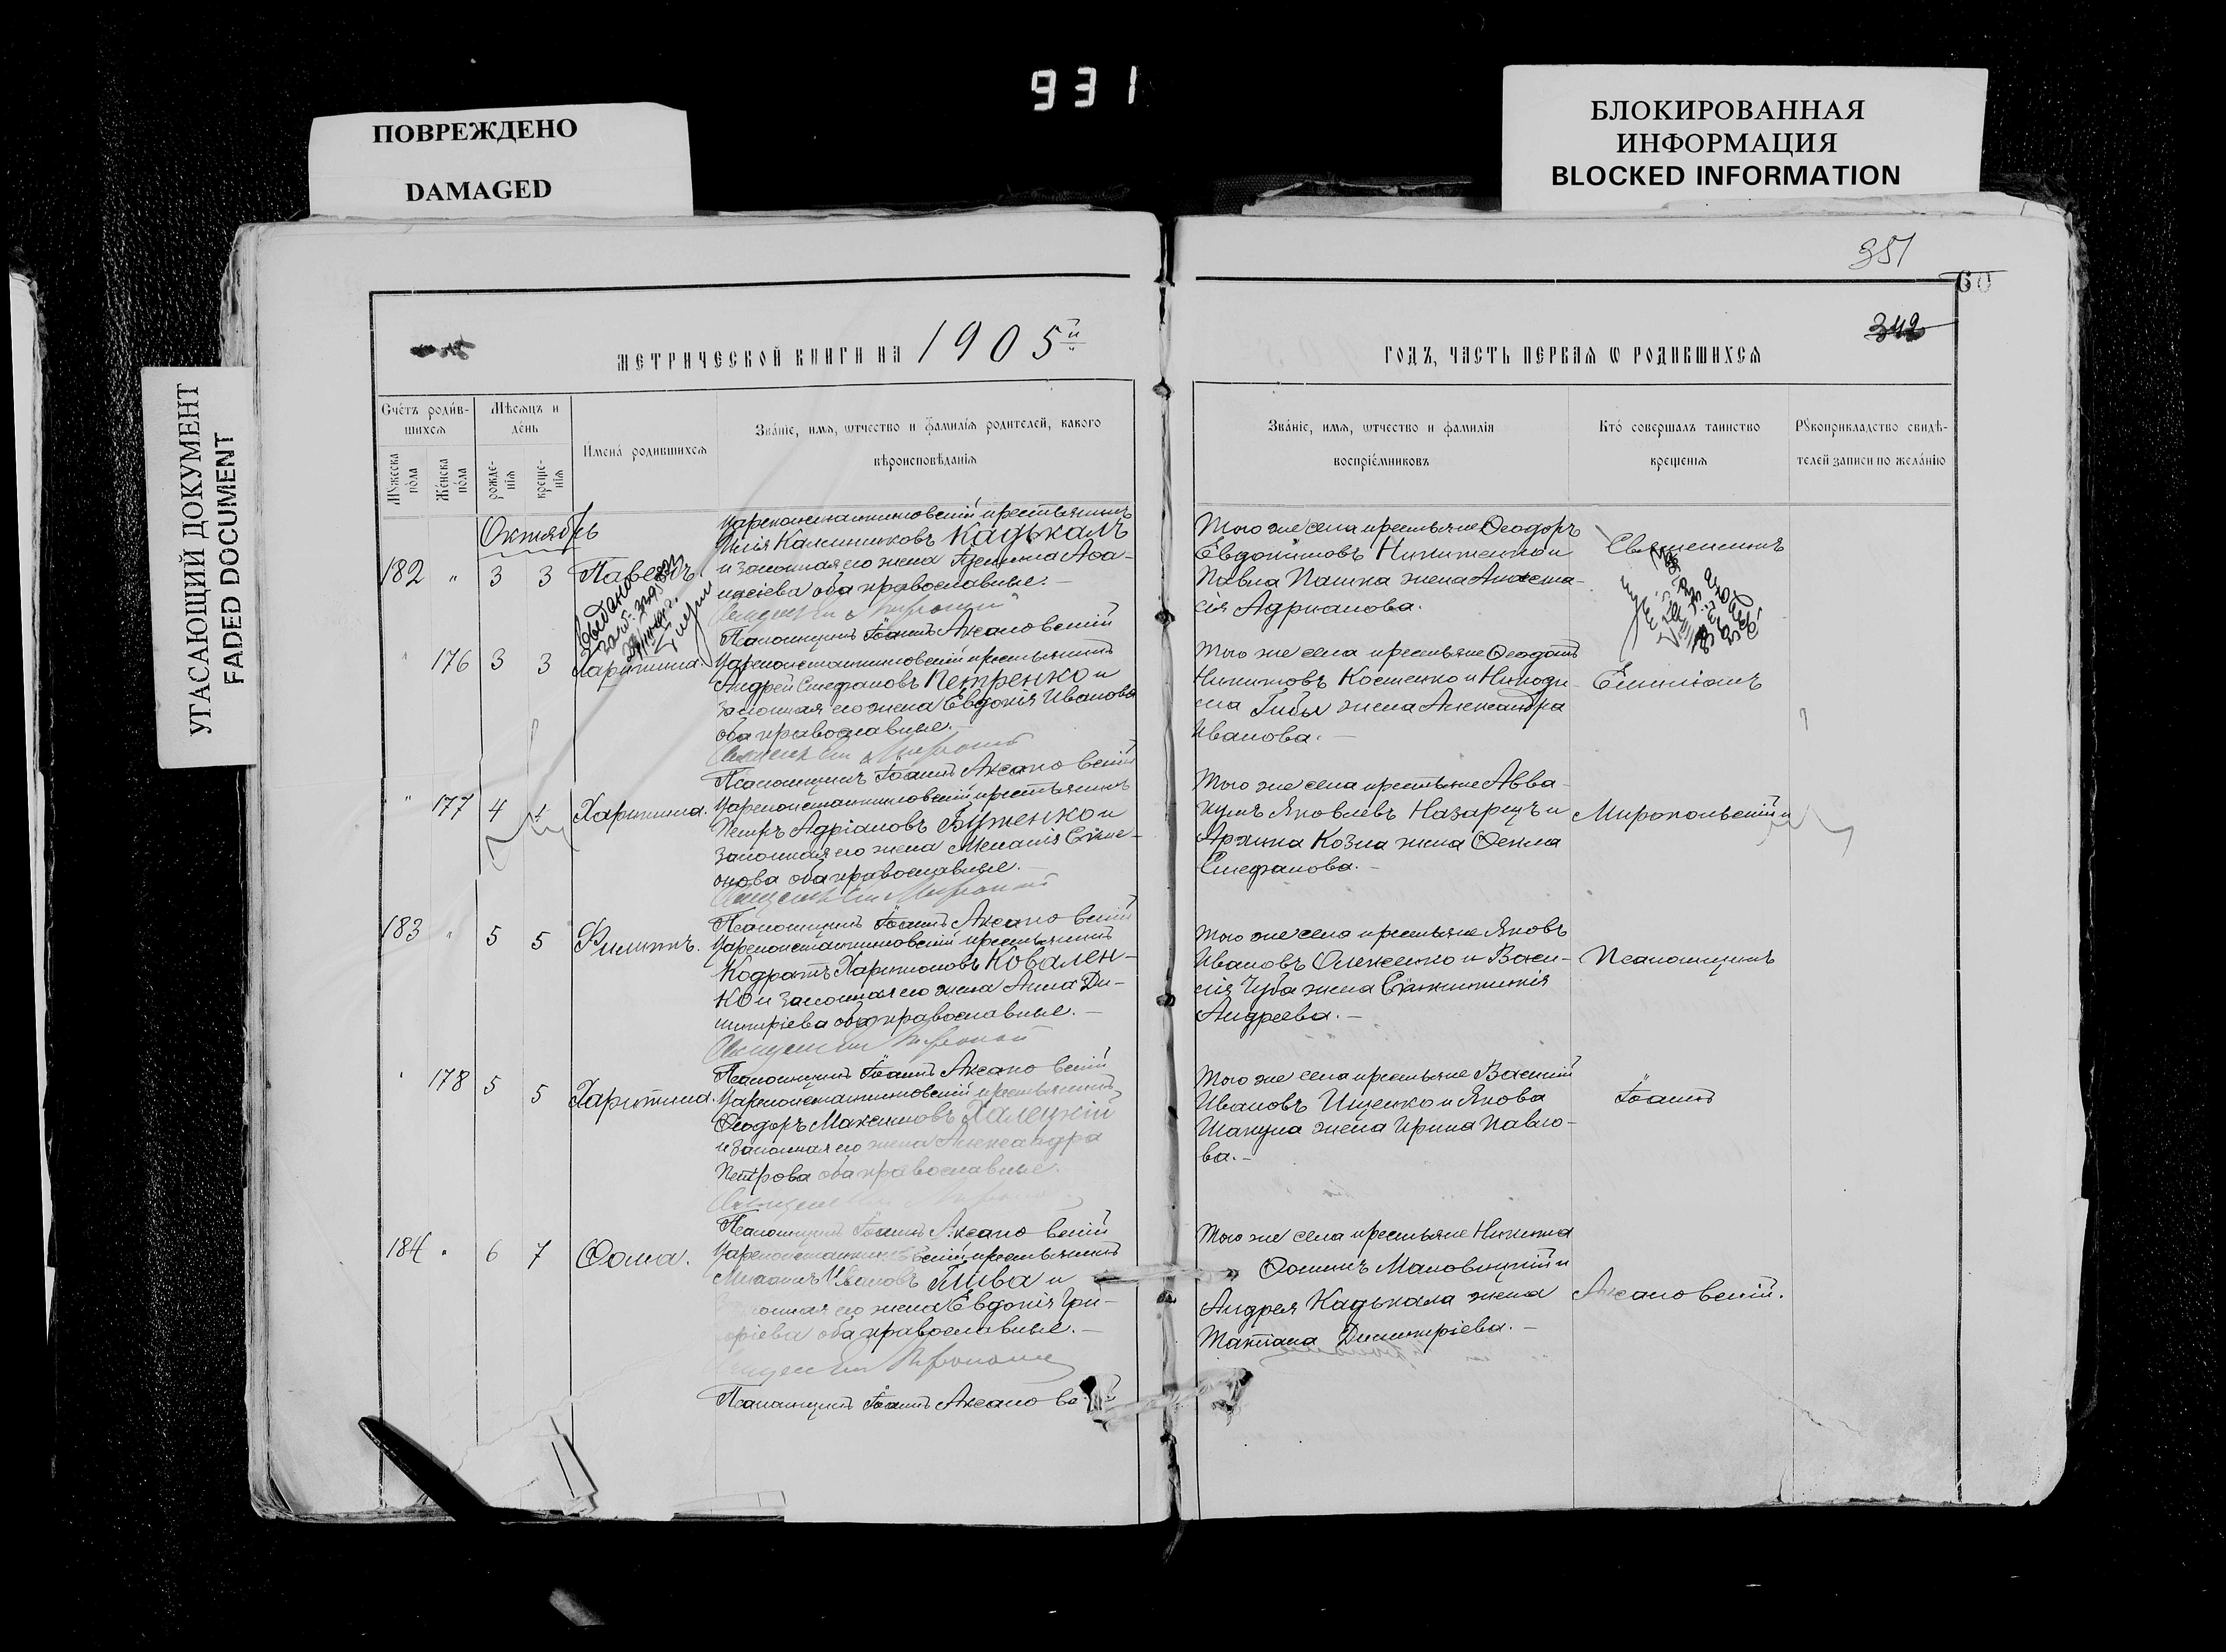 931
ПОВРЕЖДЕНО
DAMAGED
БЛОКИРОВАННАЯ
ИНФОРМАЦИЯ
BLOCKED INFORMATION
УГАСАЮЩИЙ ДОКУМЕНТ
FADED DOCUMENT
351
60
342
МЕТРИЧЕСКОЙ КНИГИ НА 1905й
Счетъ родив-
шихся
Мѣсяцъ и
день
Мужеска
пола
Женска
пола
рожде-
нія
креще-
нія
Имена родившихся
Званіе, имя, ѡтчество и фамилія родителей, какого
вѣроисповѣданія
Октябрь
182 " 3 3 Павелъ.
Цареконстантиновскій крестьянинъ
Илія Калинниковъ Кадькалъ
и законная его жена Аѳа-
насіева оба православные. –
Псаломщикъ Іоаннъ Аксановскій
" 176 3 3 Харитина.
Цареконстантиновскій крестьянинъ
Андрей Стефановъ Петренко и
законная его жена Евдокія Иванова
оба православные. –
Псаломщикъ Іоаннъ Аксановскій
" 177 4 4 Харитина.
Цареконстантиновскій крестьянинъ
Петръ Адріановъ Буженко и
законная его жена Меланія Сѵме-
онова оба православные. –
Псаломщикъ Іоаннъ Аксановскій
183 " 5 5 Филиппъ.
Цареконстантиновскій крестьянинъ
Кодратъ Харитоновъ Ковален-
ко и законная его жена Анна Ди-
митріева оба православные. –
Псаломщикъ Іоаннъ Аксановскій
" 178 5 5 Харитина.
Цареконстантиновскій крестьянинъ
Ѳеодоръ Максимовъ Халецкій
и законная его жена Александра
Петрова оба православные.
Псаломщикъ Іоаннъ Аксановскій
184 " 6 7 Ѳома.
Цареконстантиновскій крестьянинъ
Ивановъ Глива и
законная его жена Евдокія Гри-
горіева оба православные. –
Псаломщикъ Іоаннъ Аксановскій
ГОДЪ, ЧАСТЬ ПЕРВАЯ Ѡ РОДИВШИХСЯ
Званіе, имя, ѡтчество и фамилія
воспріемниковъ
Кто совершалъ таинство
крещенія
Рукоприкладство свидѣ-
телей записи по желанію
Того же села крестьяне Ѳеодоръ
Евдокимовъ Никитенко и
Павла Пашка жена Анаста-
сія Адріанова.
Того же села крестьяне Ѳеодотъ
Никитовъ Костенко и Никоди-
ма Гибы жена Александра
Иванова. –
Того же села крестьяне Авва-
кумъ Яковлевъ Назарецъ и
Козла жена Ѳекла
Стефанова. –
Того же села крестьяне Яковъ
Ивановъ Олексенко и Васи-
лія Чуба жена
Андреева. –
Того же села крестьяне Василій
Ивановъ Ищенко и Якова
Шакула жена Ирина Павло-
ва. –
Того же села крестьяне Никита
Ѳоминъ Маловицкій и
Андрея Кадькала жена
Татіана Димитріева. –
Священникъ
Емиліанъ
Миропольскій и
Псаломщикъ
Іоаннъ
Аксановскій.